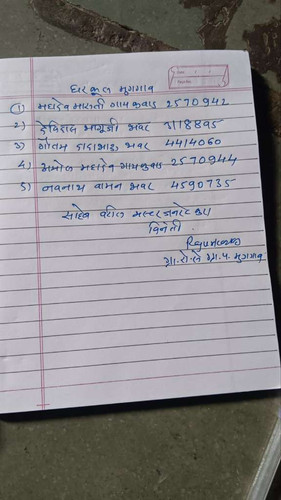 घरकूल मुगगाव
1) महादेव मारुती गायकवाड 2570942
2) देविदास भागुजी भवर 3118895
3) गौतम दादाभाऊ भवर 4414060
4) अमोल महादेव गायकवाड 2570944
5) नवनाथ वामन भवर 4590735
साहेब वरील मस्टर जनरेट करा
विनंती
ग्रा.रो.से ग्रा.पं. मुगगाव